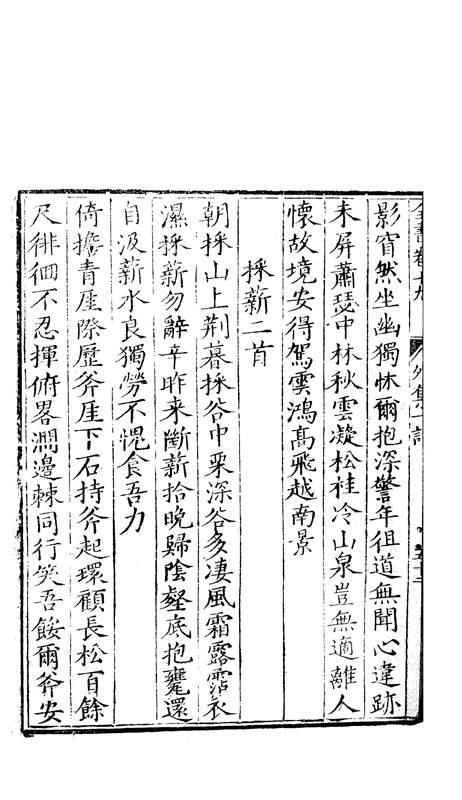 全書卷十九 外集一 詩
影窅然坐幽獨怵爾抱深警年徂道無聞心違跡
未屏蕭瑟中林秋雲凝松桂冷山泉豈無適離人
懷故境安得駕雲鴻高飛越南景
採薪二首
朝採山上荆暮採谷中栗深谷多凄風霜露霑衣
濕採薪勿辭辛昨来斷薪拾晚歸陰壑底抱甕還
自汲薪水良獨勞不愧食吾力
倚擔青厓際歷斧厓下石持斧起環顧長松百餘
尺徘徊不忍揮俯畧澗邊棘同行笑吾餒爾斧安